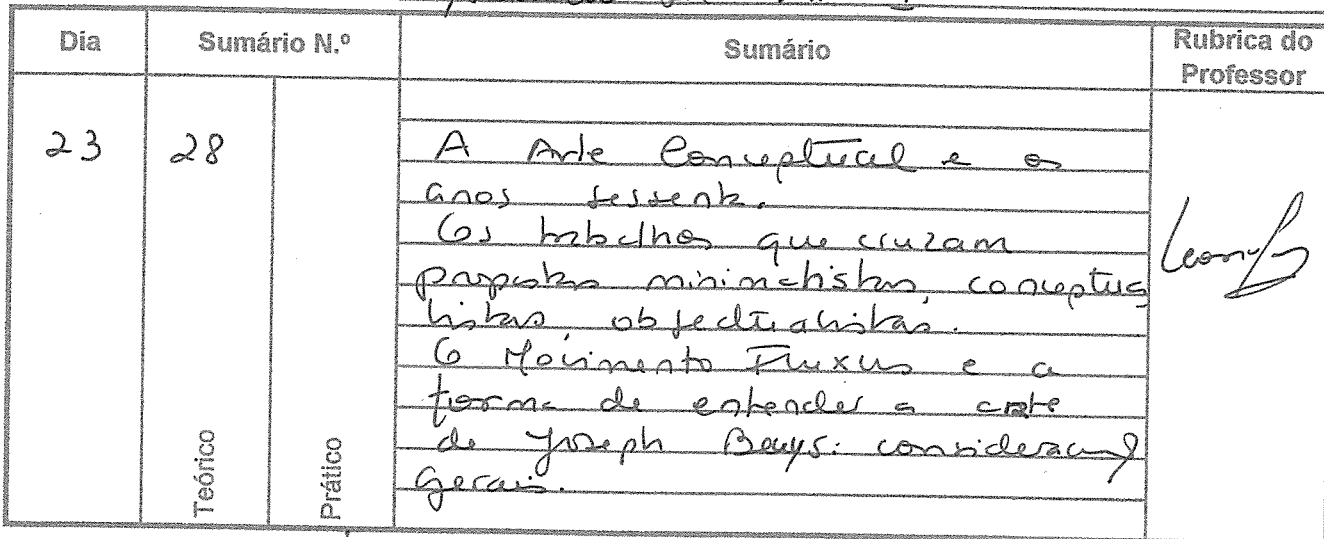 Dia Sumário N.º Sumário Rubrica do Professor
23 28 A Arte Conceptual e os
anos sessenta.
Os trabalhos que cruzam
propostas minimalistas, conceptua
listas, objectualistas.
O Movimento Fluxus e a
forma de entender a arte
de Joseph Beuys: considerações
gerais.
Teórico
Prático